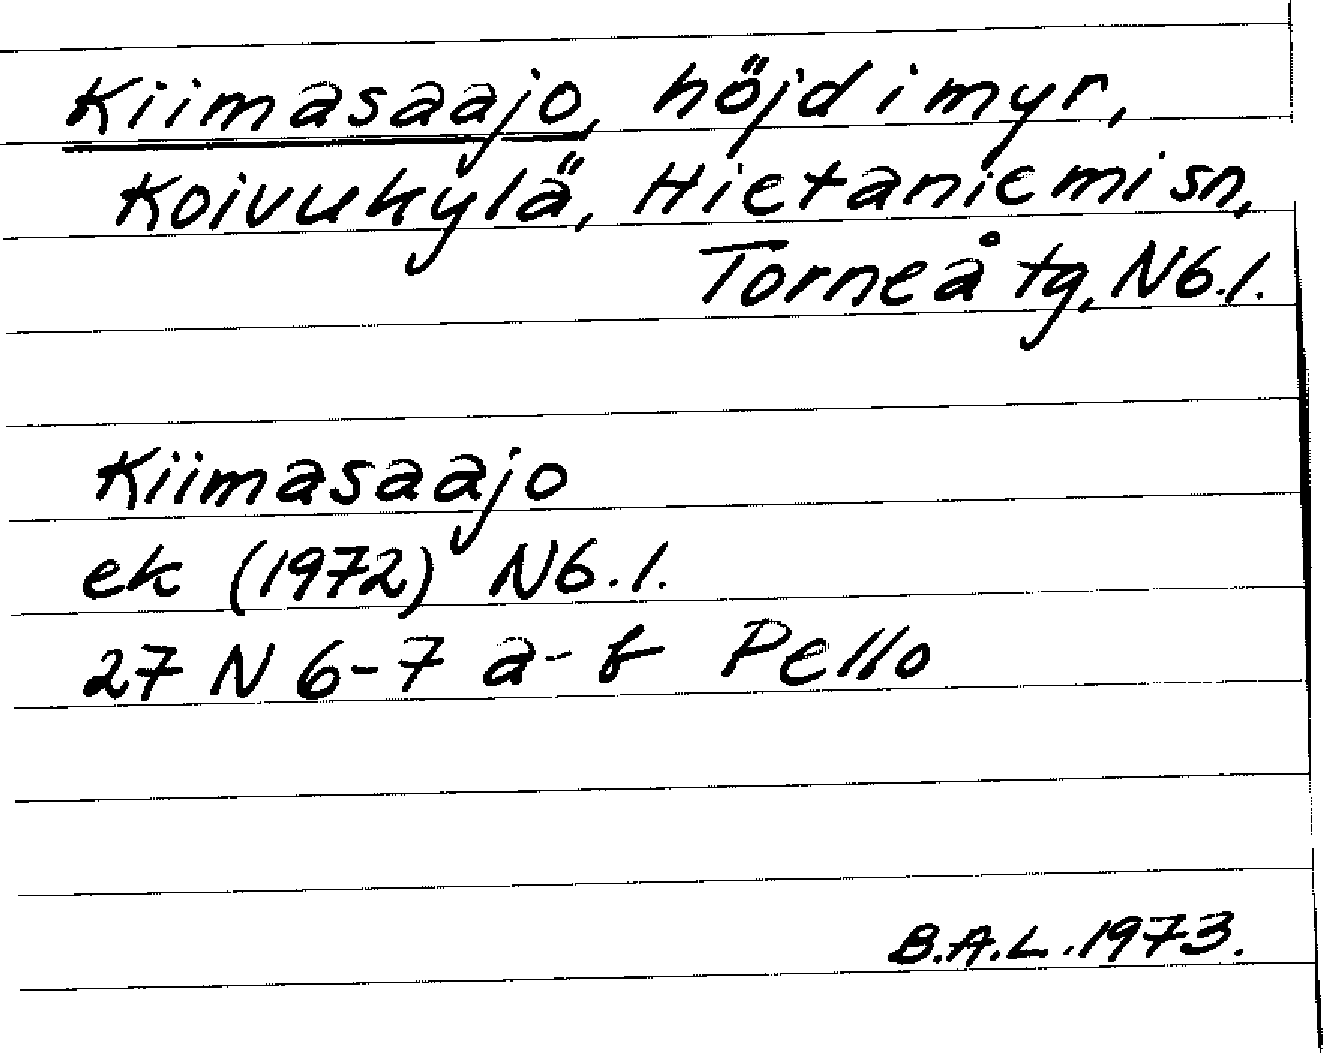 Kiimasaajo, höjd i myr,
Koivukylä, Hietaniemi sn,
Torneå tg, N6.1.
Kiimasaajo
ek (1972) N6.1.
27 N 6-7 a-b Pello
B.A.L. 1973.